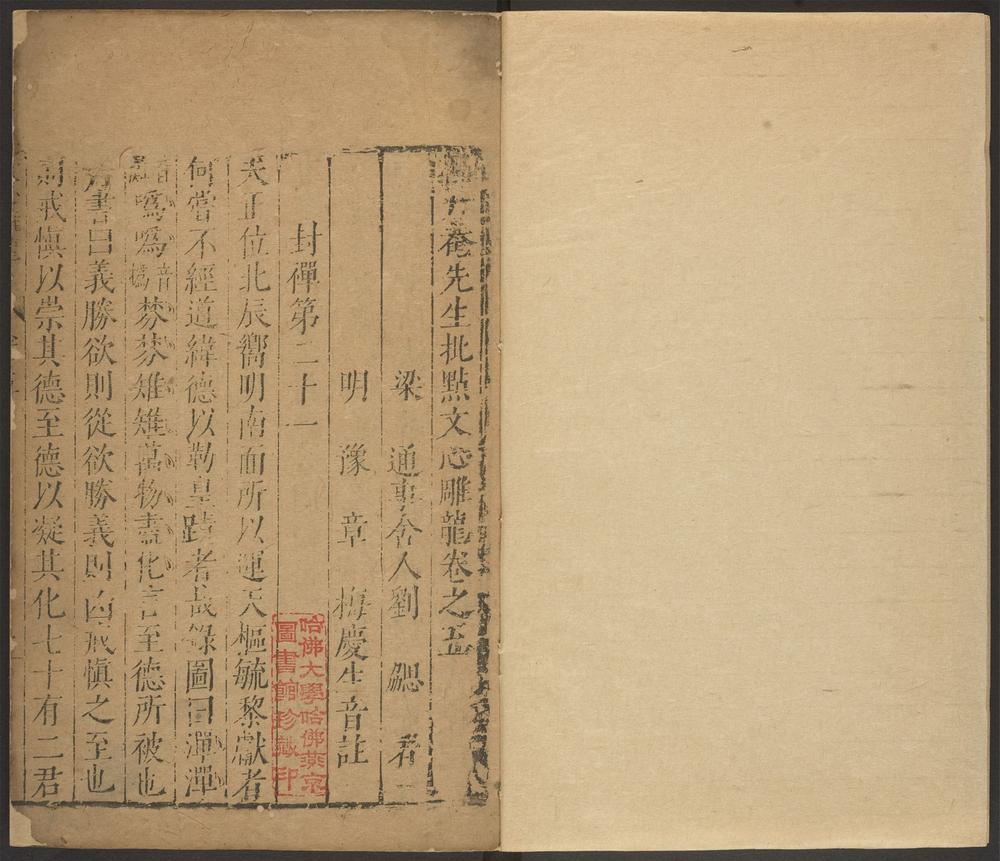 升菴先生批點文心雕龍卷之五
梁 通事舍人劉 勰 著
明 豫 章 梅慶生音註
封禪第二十一
夫正位北辰嚮明南面所以運天樞毓黎獻者
何嘗不經道緯德以勒皇蹟者哉錄圖曰潬潬
音 噅噅音 棼棼雉雉萬物盡化言至德所被也
丹書曰義勝欲則從欲勝義則凶戒慎之至也
則戒慎以崇其德至德以凝其化七十有二君
哈佛大學哈佛燕京
圖書館珍藏印